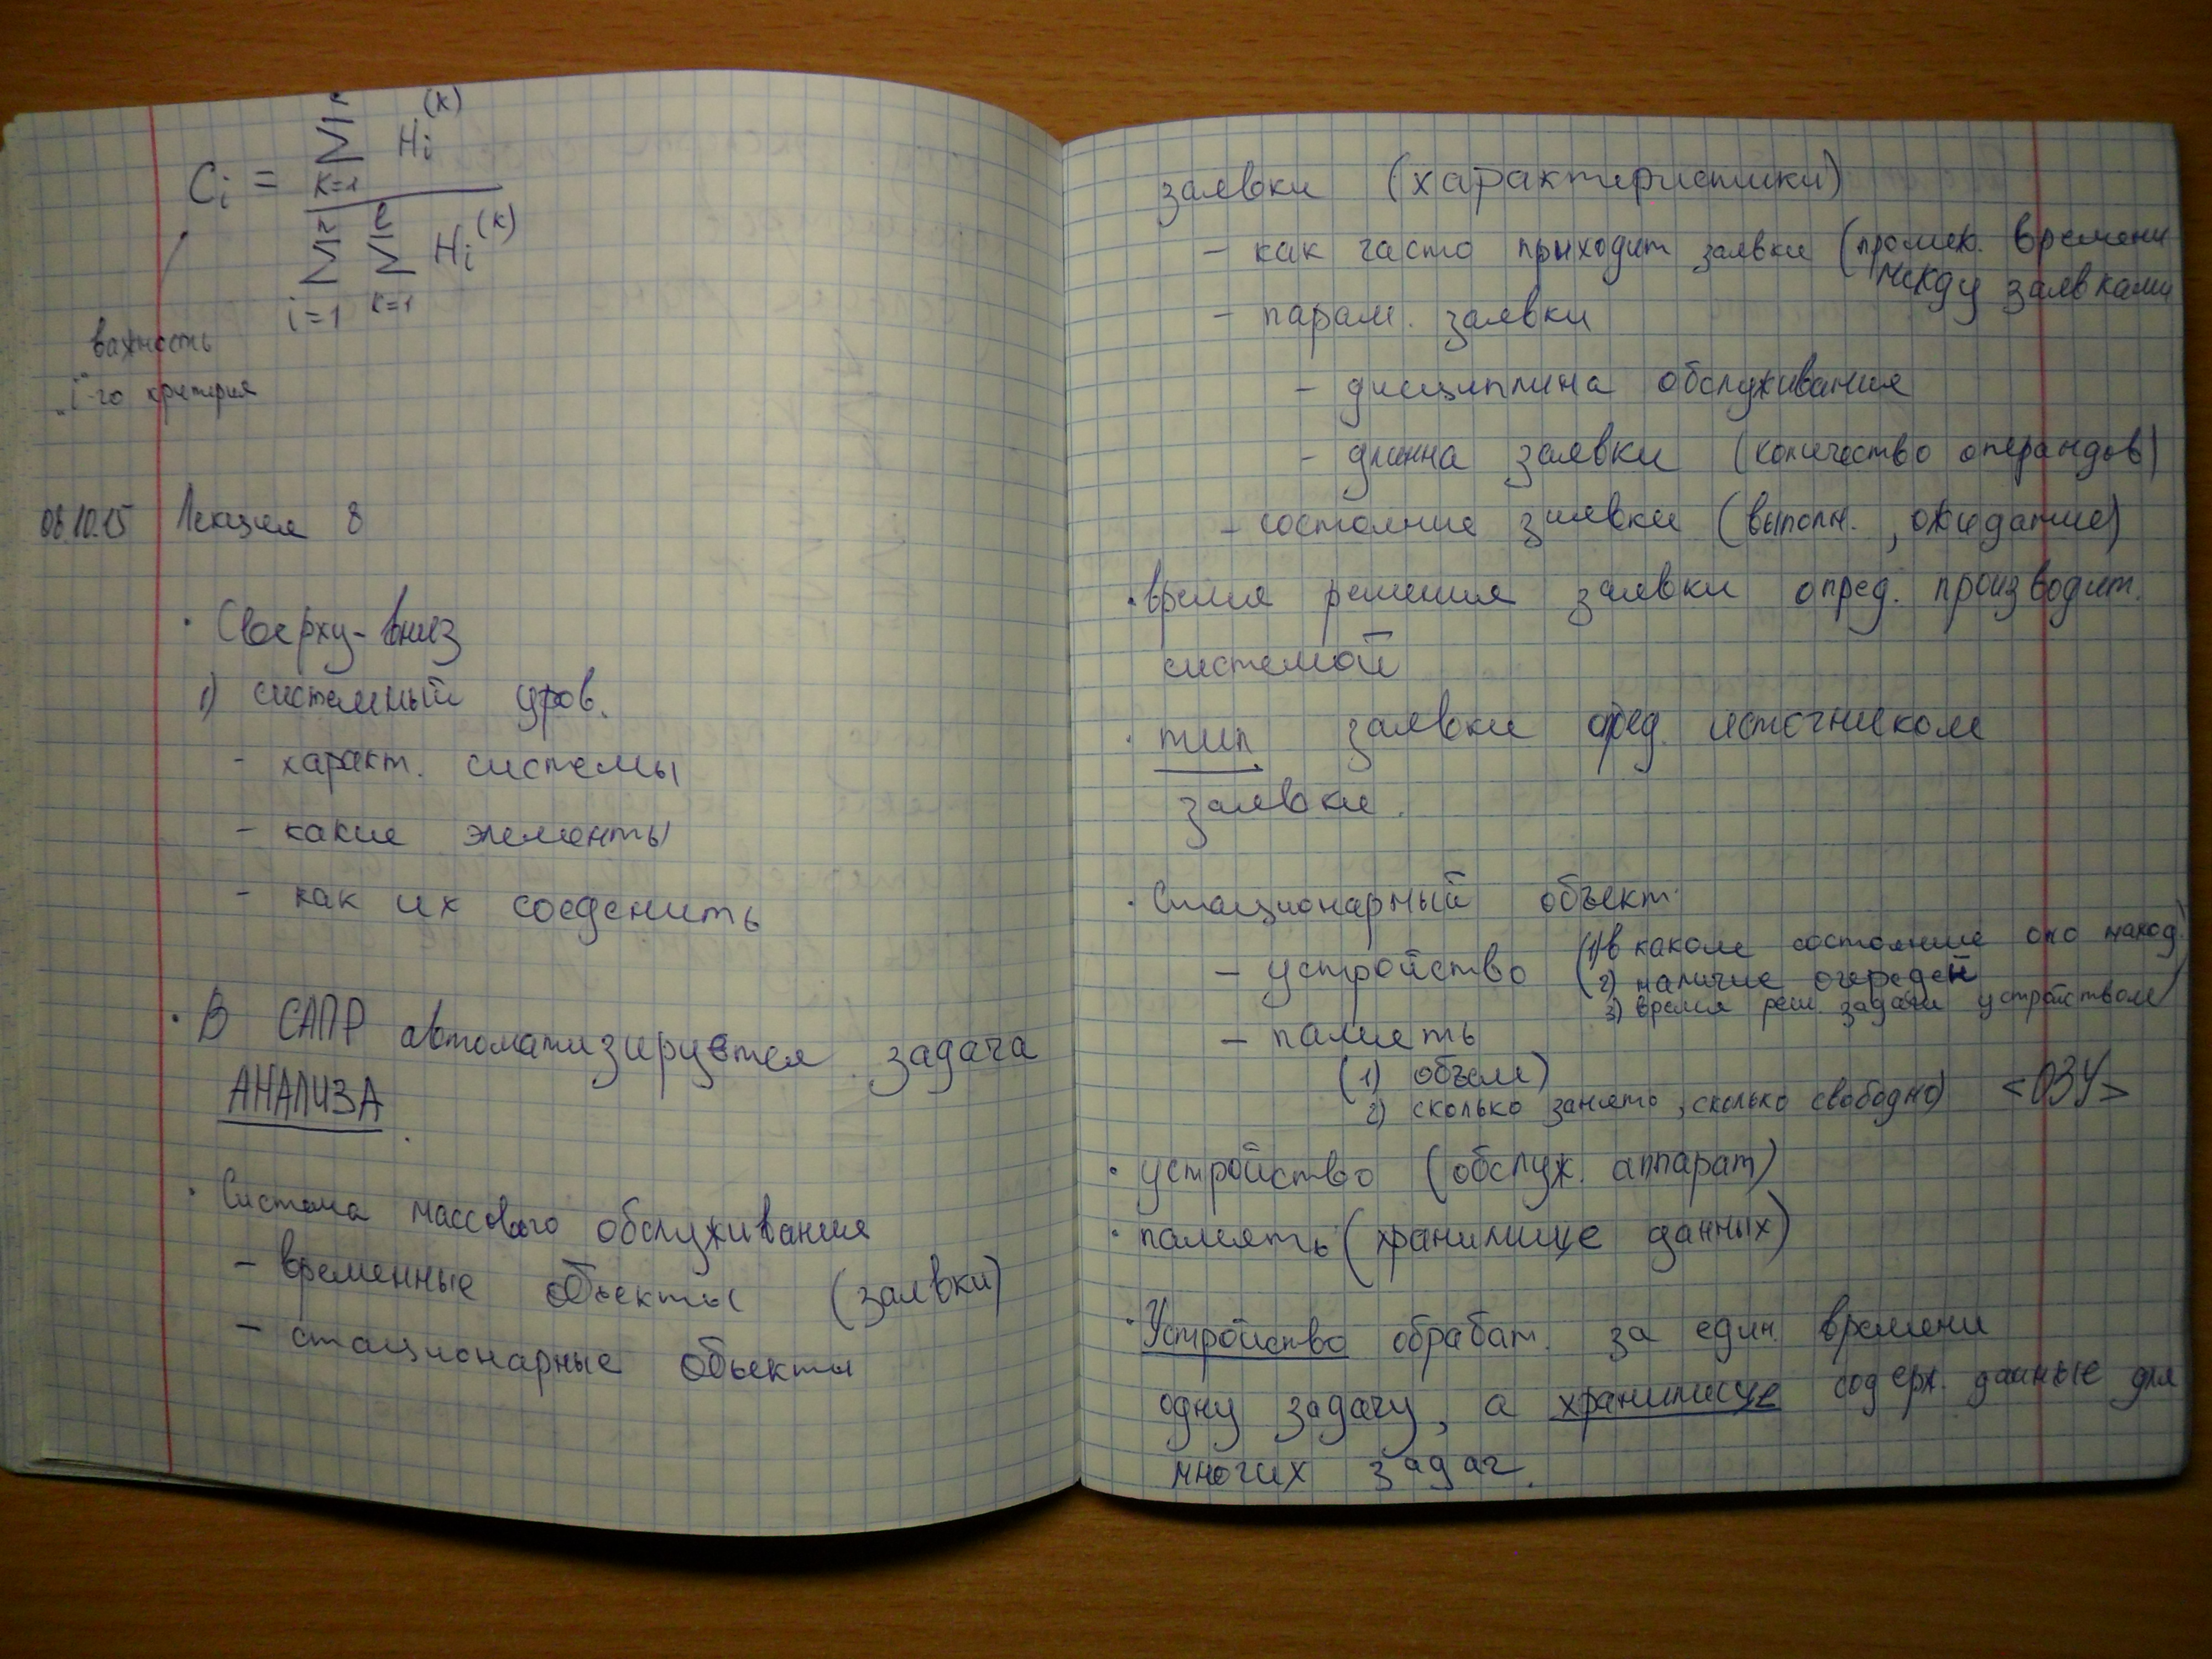 Ci = Σ k=1 Hi (k)
Σ i=1 Σ k=1 Hi (k)
важность
"i"-го критерия
08.10.15 Лекция 8
· Сверху-вниз
1) системный уров.
- характ. системы
- какие элементы
- как их соеденить
· В САПР автоматизируется задача
АНАЛИЗА.
· Система массового обслуживания
- временные объекты (заявки)
- стационарные объекты
заявки (характеристики)
- как часто приходит заявки (пром. времени
между заявками
- парам. заявки
- дисциплина обслуживания
- длинна заявки (количество операндов)
- состояние заявки (выполн., ожидание)
· время решения заявки опред. производит.
системой
· тип заявки опред. источником
заявки.
· Стационарный объект
- устройство (1) в каком состояние оно наход.
2) наличие очередей
3) время реш. задачи устройством)
- память
(1) объем)
2) сколько занято, сколько свободно) <ОЗУ>
· устройство (обслуж. аппарат)
· память (хранилище данных)
· Устройство обработ. за един. времени
одну задачу, а хранилище содерж. данные для
многих задач.